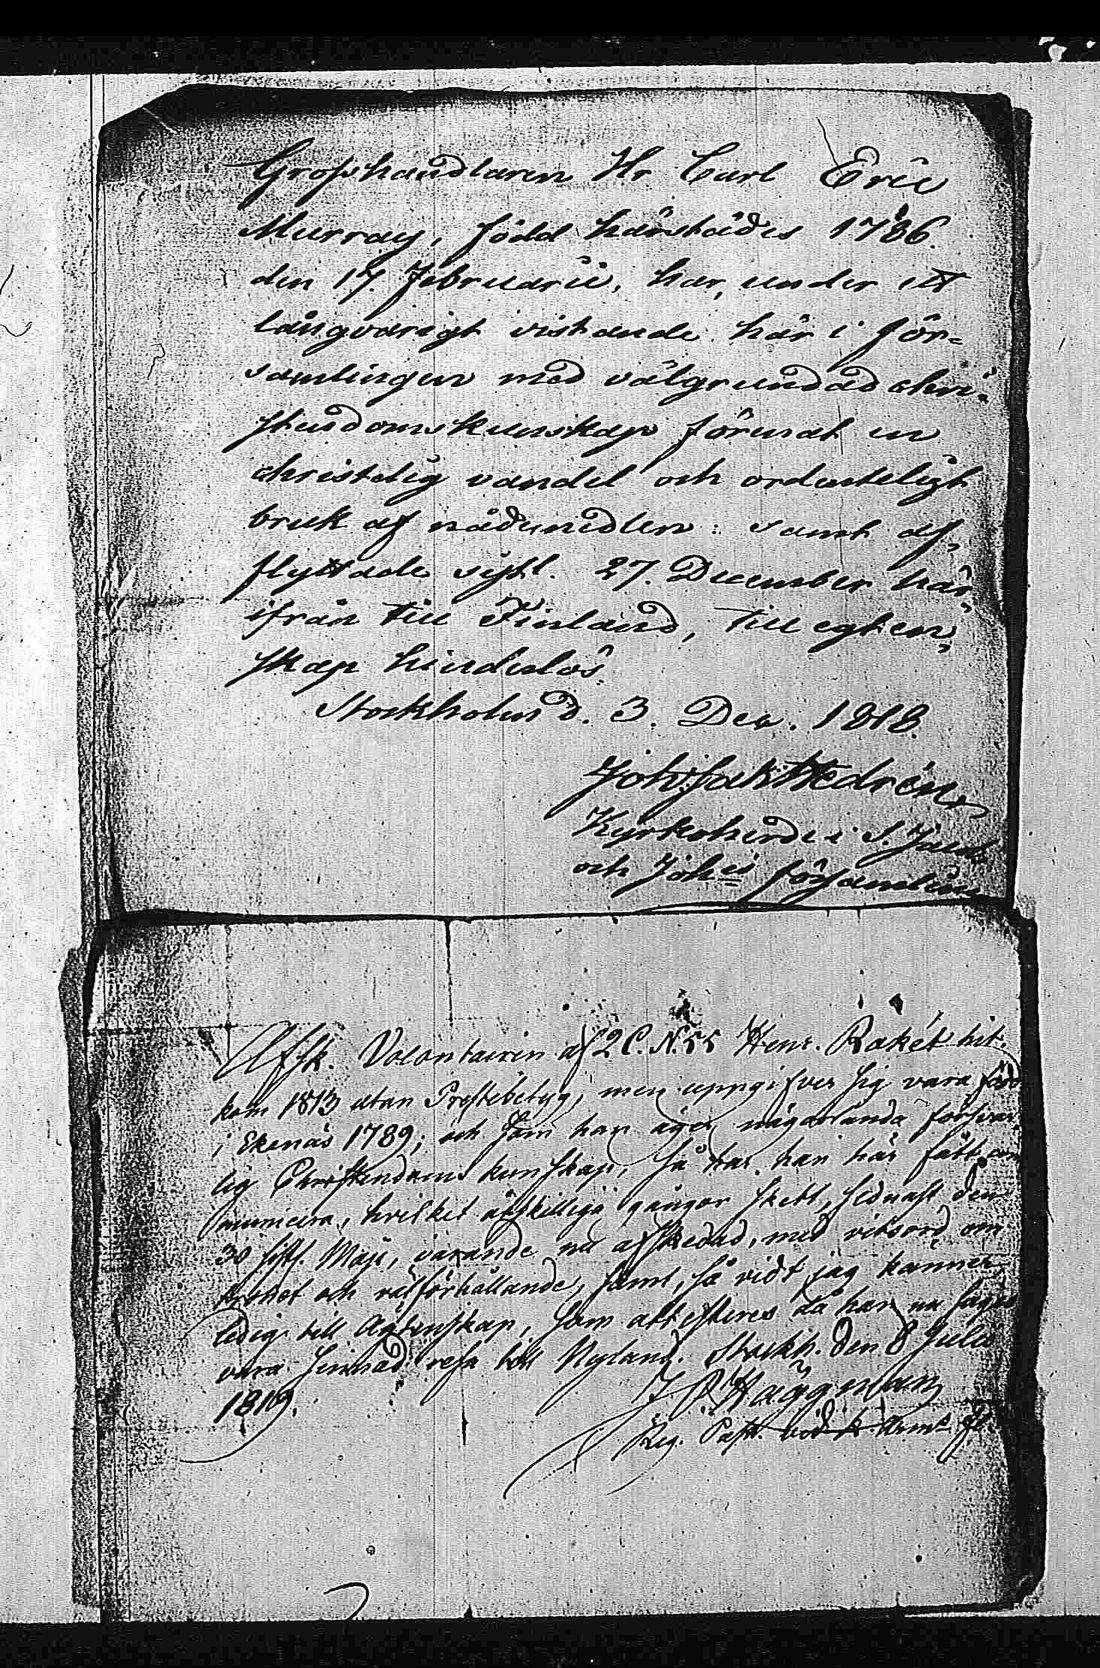 Grosshandlaren Hr Carl Eric
Murray, född härstädes 1786.
den 17 Februarii, har, under ett
långvarigt vistande här i för-
samlingen med välgrundad chri-
stendomskunskap förenat en
christelig vandel och ordenteligt
bruk af nådemedlen: samt af-
flyttade sistl. 27. December här
ifrån till Finland, till egten-
skap hinderlös.
Stockholm d. 3. Dec. 1818.
Joh: Jak Hedrén
Kyrkoherde i S. Jacobs
och Joh:is församling
Afsk. Volontairen af 2 C. N. 55 Henr. Rakét hit-
kom 1813 utan Prestebetyg, men uppgifver sig vara född
i Ekenäs 1789; och som han äger någorlunda försvar-
lig Christendoms kunskap, så har han här fått com
municera, hvilket åtskilliga gångor skett, sednast den
30 sistl. Maji, varande nu afskedad, med vitsord om
och välförhållande, samt, så vidt jag känner
ledig till Ägtenskap, som attesteras då han nu säges
vara sinnad resa till Nyland. Stockh. den 8 Julii
1819.
J P Häggman
Reg. Past. vid k.